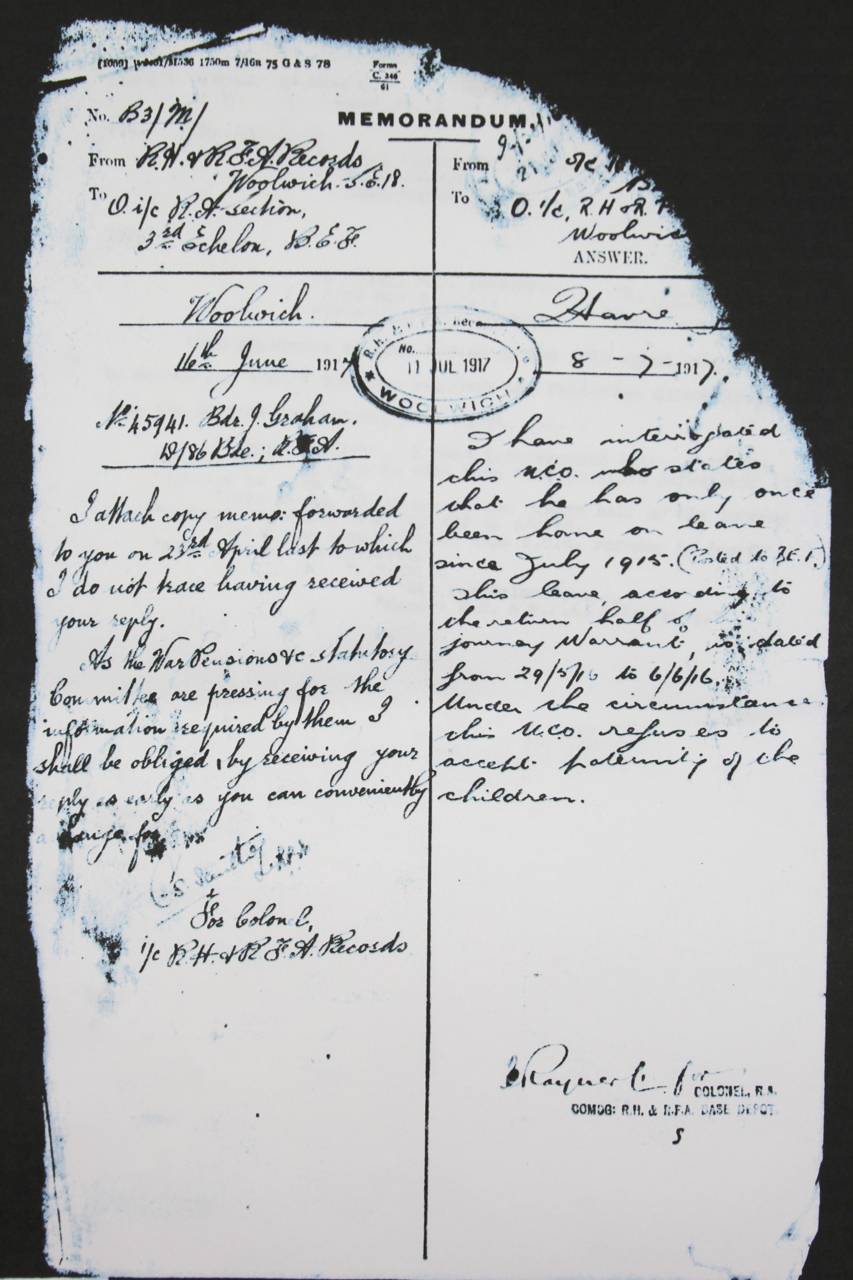 [1000] 1750m 7/16n 75 G & S 78
Forms
C. 348
61
MEMORANDUM.
No. B3/M/
From R.H. & R.F.A. Records
Woolwich. S.E.18.
To O. i/c R.A. section,
3rd Echelon, B.E.F.
Woolwich.
16th June 1917
No 45941. Bdr. J. Graham.
D/86 Bde.; R.F.A.
I attach copy memo: forwarded
to you on 23rd April last to which
I do not trace having received
your reply.
As the War Pensions &c statutory
Committee are pressing for the
information required by them I
shall be obliged, by receiving your
reply as early as you can conveniently
for
For Colonel,
i/c R.H. & R.F.A. Records
From
To O. i/c, R.H & R.F
Woolwic
ANSWER.
Havre
8 - 7 - 1917.
No.
11 JUL 1917
WOOLWICH
I have interrogated
this NCO. who states
that he has only once
been home on leave
since July 1915. (Posted to B.E.F.)
This leave, according to
the return half of
journey Warrant, is dated
from 29/5/16 to 6/6/16.
Under the circumstance
this N.CO. refuses to
accept paternity of the
children.
COLONEL, R.A.
COMDG: R.H. & R.F.A. BASE DEPOT.
S